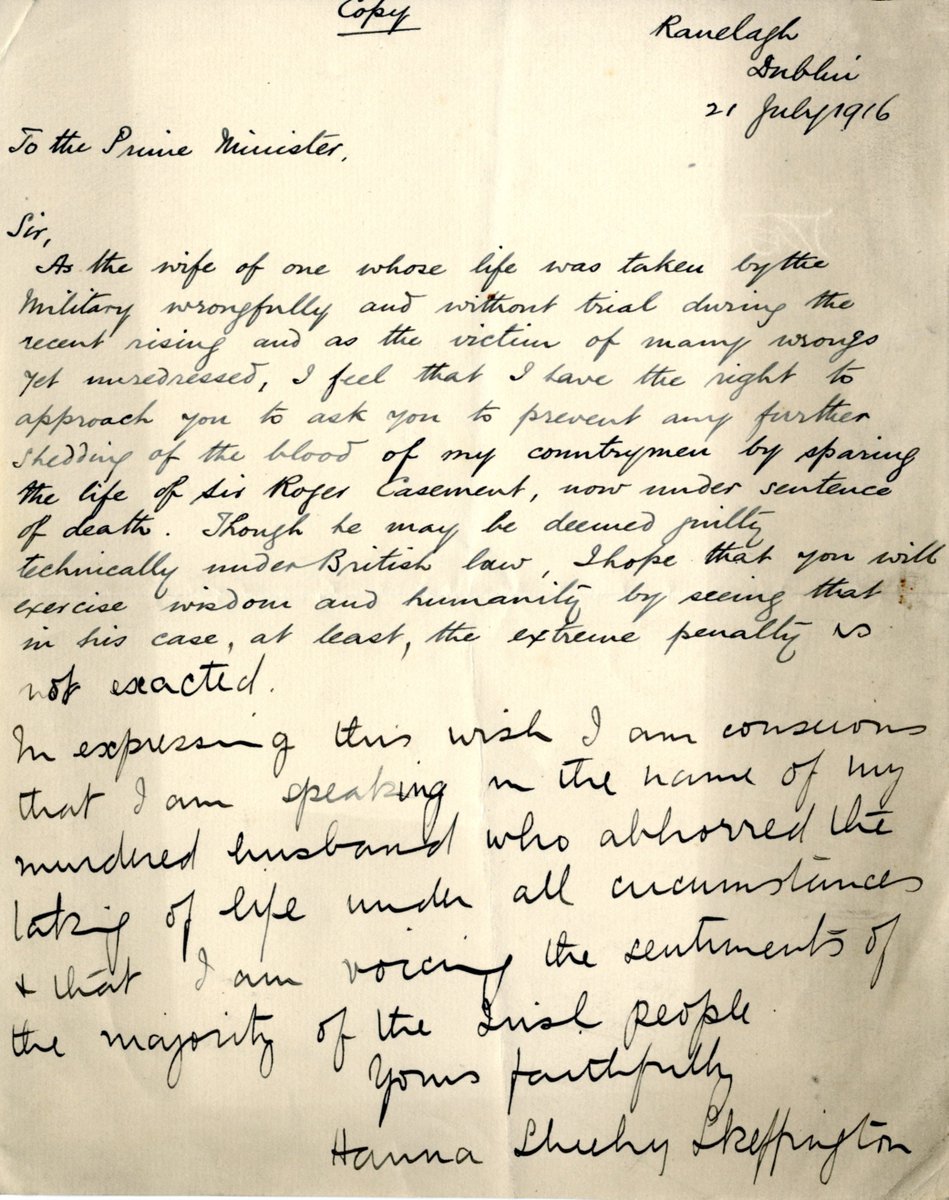 Copy
Ranelagh
Dublin
21 July 1916
To the Prime Minister,
Sir,
As the wife of one whose life was taken by the
Military wrongfully and without trial during the
recent rising and as the victim of many wrongs
yet unredressed, I feel that I have the right to
approach you to ask you to prevent any further
shedding of the blood of my countrymen by sparing
the life of Sir Roger Casement, now under sentence
of death. Though he may be deemed guilty
technically under British law, I hope that you will
exercise wisdom and humanity by seeing that
in his case, at least, the extreme penalty is
not exacted.
In expressing this wish I am conscious
that I am speaking in the name of my
murdered husband who abhorred the
taking of life under all circumstances
& that I am voicing the sentiments of
the majority of the Irish people.
Yours faithfully
Hanna Sheehy Skeffington